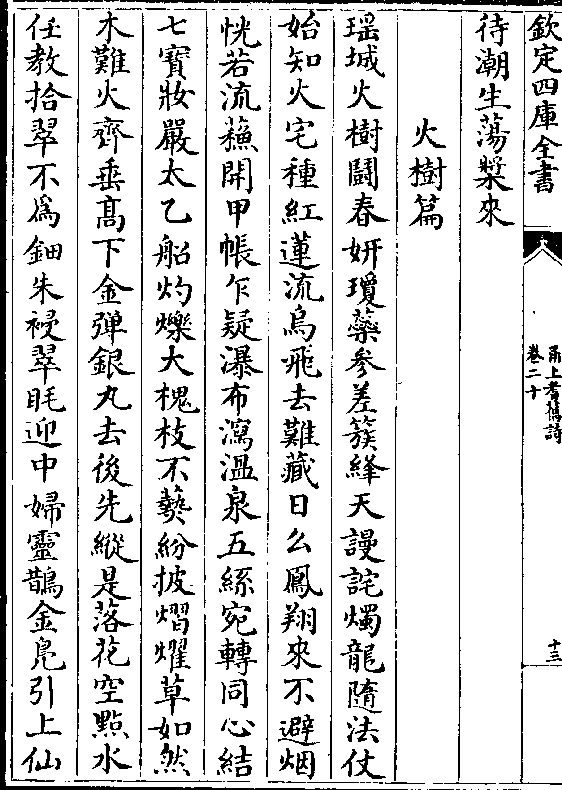 欽定四庫全書
甬上耆舊詩
卷二十
十三
待潮生蕩槳來
火樹篇
瑶城火樹鬬春妍瓊蘂參差簇絳天謾詫燭龍隨法仗
始知火宅種紅蓮流烏飛去難藏日么鳳翔來不避烟
恍若流蘓開甲帳乍疑瀑布瀉溫泉五絲宛轉同心結
七寳妝嚴太乙船灼爍大槐枝不爇紛披熠燿草如然
木難火齊垂髙下金彈銀丸去後先縱是落花空點水
任教拾翠不為鈿朱衱翠眊迎中婦靈鵲金鳬引上仙